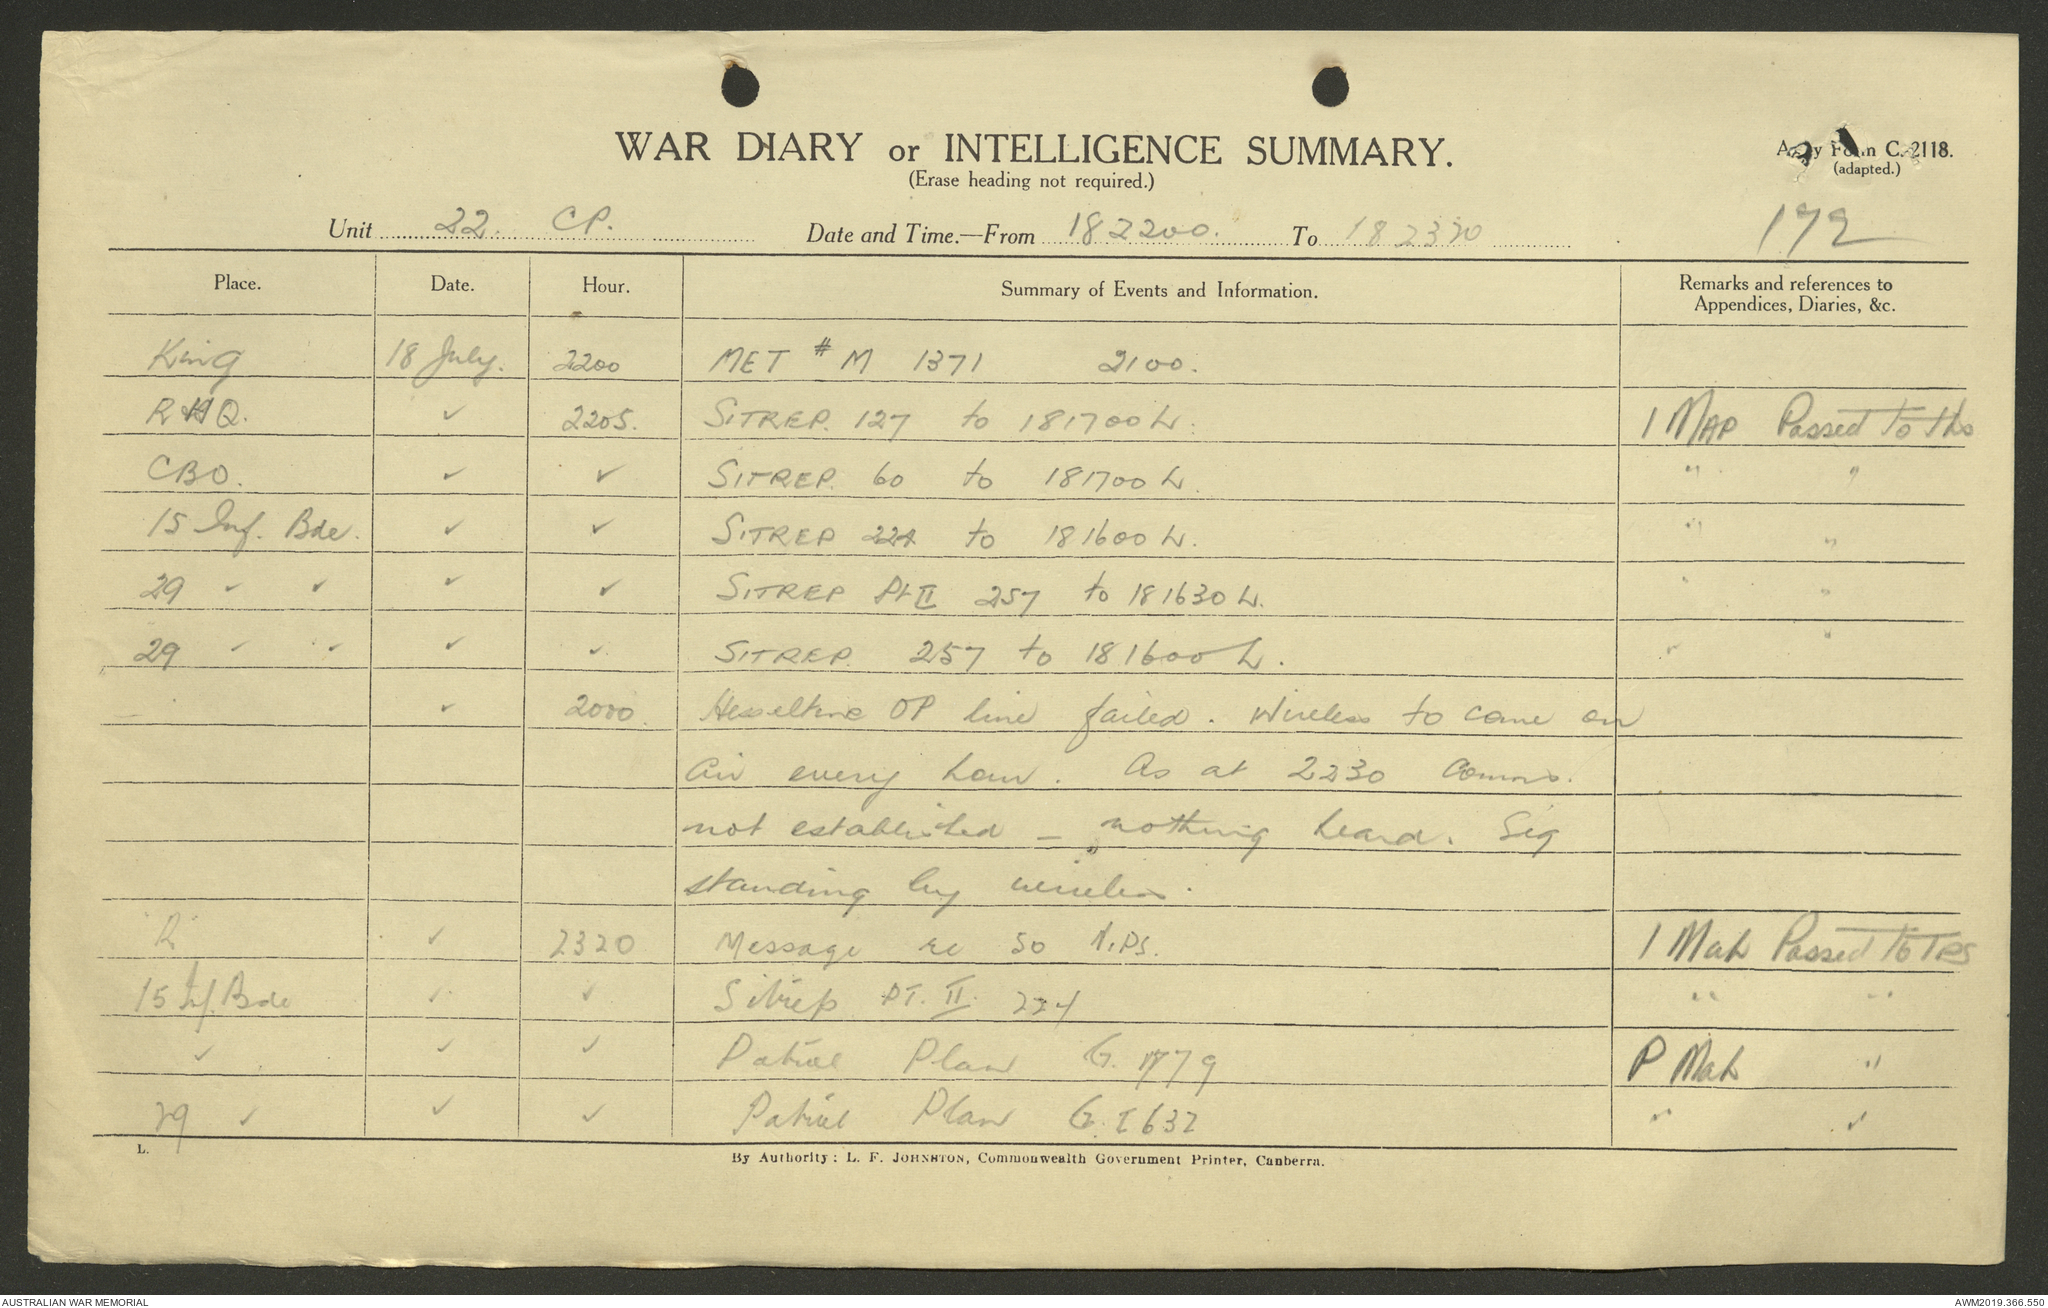 WAR DIARY or INTELLIGENCE SUMMARY.
(Erase heading not required.)
Army Form C. 2118.
(adapted.)
172
Unit 22. CP. Date and Time.—From 182200. To 182320
Place. Date. Hour. Summary of Events and Information. Remarks and references to Appendices, Diaries, &c.
King 18 July. 2200 MET # M 1371 2100.
RHQ. ✓ 2205. SITREP. 127 to 181700 L. 1 MAP Passed to
CBO. ✓ ✓ SITREP. 60 to 181700 L. " "
15 Inf. Bde. ✓ ✓ SITREP 224 to 181600 L. " "
29 ✓ ✓ ✓ ✓ SITREP Pt II 257 to 181630 L. " "
29 ✓ ✓ ✓ ✓ SITREP. 257 to 181600 L. " "
✓ 2000. Hesseltine OP line failed. Wireless to come on
air every hour. As at 2230 Comms.
not established - nothing heard. Sig
standing by wireless.
R ✓ 2320 Message re 50 1 Passed to
15 Inf. Bde ✓ ✓ Sitrep PT. II. 224 " "
✓ ✓ ✓ Patrol Plan G. 1779 P "
29 ✓ ✓ ✓ Patrol Plan G. I632 " ✓
L.
By Authority: L. F. JOHNSTON, Commonwealth Government Printer, Canberra.
AUSTRALIAN WAR MEMORIAL
AWM2019.366.550